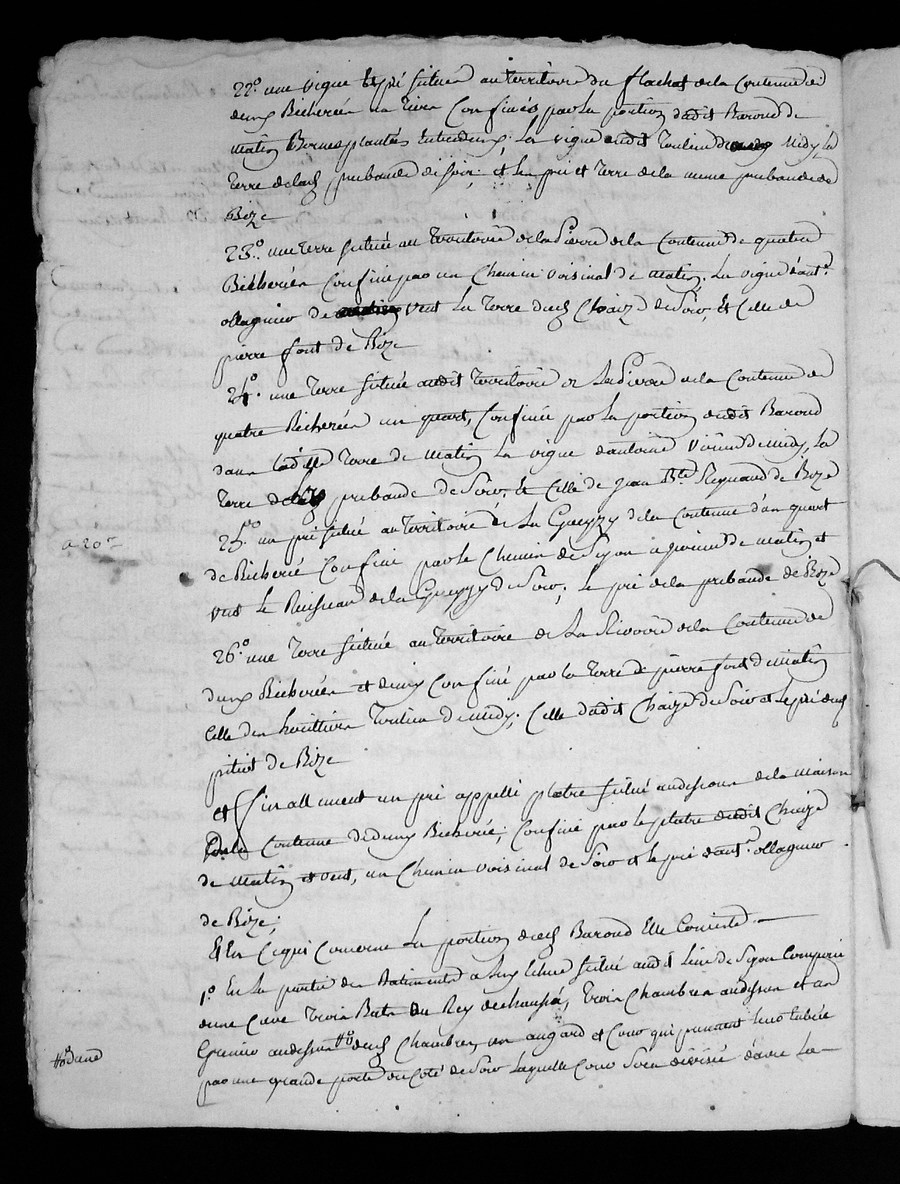 22.° une vigne et pré située au territoire du flachat de la Contenue de
deux Bicherées un tiers Confinés par la portion dudit Baroud de
matin Bornes plantées Entredeux; la vigne dudit Toulieu de midy, la
Terre de lad. prebande de soir. et les pré et terre de la meme prebande de
Bize
23.° une terre située au territoire de la Pierre de la Contenue de quatre
Bicherées Confinée par un Chemin voisinal de matin. La vigne d'ant.
ollagnier de vent La terre dud. Chaize de Soir, Et Celle de
pierre font de Bize
24.° une Terre située audit Territoire de La Pierre de la Contenue de
quatre Bicherées un quart, Confinée par la portion dudit Baroud
dans lad. Terre de matin La vigne d'antoine de midy, la
terre de lad. prebande de Soir, Et Celle de jean B.te Reynaud de Bize
25.° un pré situé au Territoire de La Gueyzy de la Contenue d'un quart
de Bicherée Confiné par le Chemin de à de matin et
vent Le Ruisseau de la Gueyzy de Soir, Le pré de la prebande de Bize
26.° une Terre située au territoire de La Rivoire de la Contenue de
deux Bicherées et demy Confiné par la terre de pierre font de matin
Celle des heritiers Toulieu de midy; Celle dudit Chaize de Soir et le pré dud.
pitiot de Bize
et finallement un pré appellé platre situé au dessous de la maison
de la Contenue de deux Bicherée; Confiné par le platre dudit Chaize
de matin et vent, un Chemin voisinal de Soir et le pré d'ant. ollagnier
de Bize;
Et En Ce qui Concerne La portion dud. Baroud Elle Consiste
1.° En La partie des Batiments a luy Echue situé audit Lieu de Composée
d'une Cave Trois Bats du Rey de chaussée, Trois Chambres au dessus et un
Grenier au dessus desd. Chambres, un angard et Cour qui prennent leur Entrée
par une grande porte du Coté de Soir laquelle Cour Sera divisée d'avec La